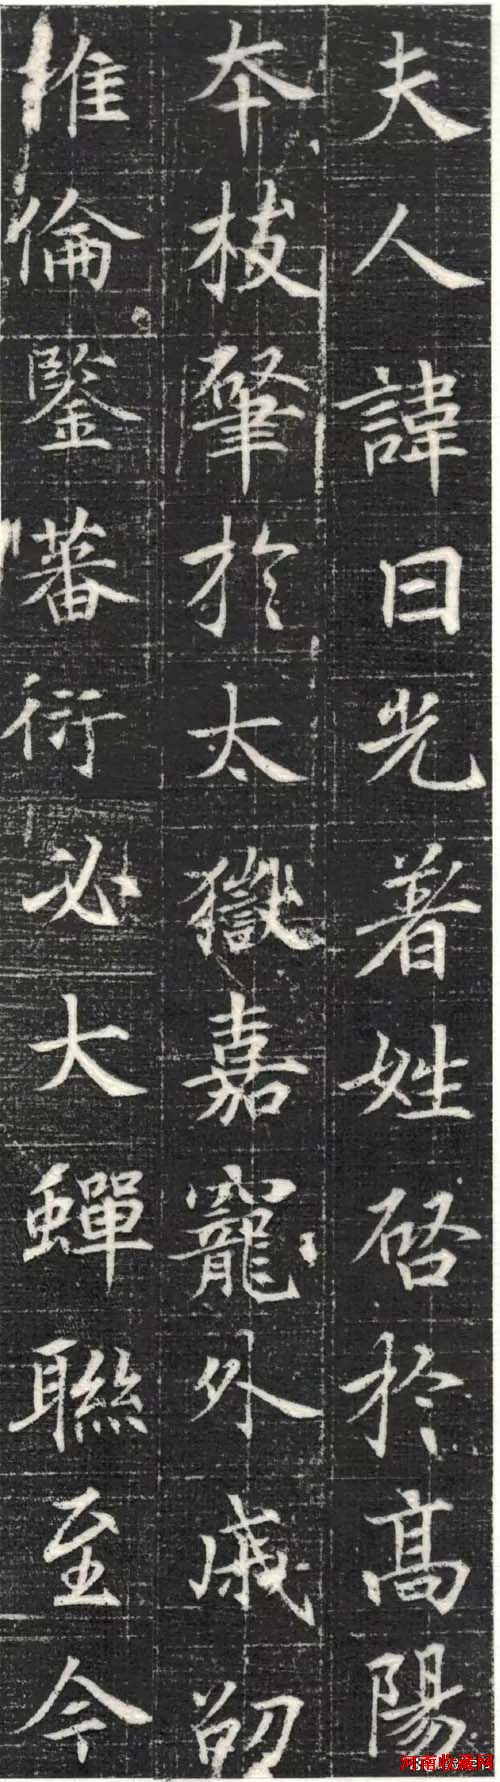 夫人諱曰光著姓啓於高陽
本枝肇於太嶽嘉寵外戚邵
推倫鑒蕃衍必大蟬聯至今
河南收藏网